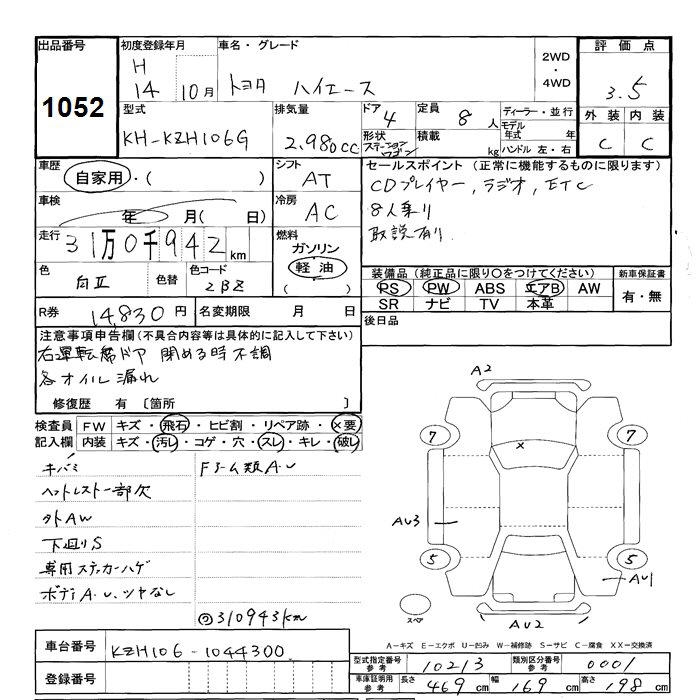 出品番号
1052
初度登録年月
H
14 10月
車名・グレード
トヨタ ハイエース
2WD
・
4WD
評価点
3.5
外装 内装
C C
型式
KH-KZH106G
排気量
2,980cc
ドア
4
形状
ステーションワゴン
定員
8人
積載
kg
ディーラー・並行
モデル年式 年
ハンドル 左・右
車歴
自家用・( )
シフト
AT
車検
年 月( 日)
冷房
AC
走行
31万0千942km
燃料
ガソリン
軽油
( )
色
白Ⅱ
色替
色コード
2BZ
R券
14,830円
名変期限 月 日
セールスポイント(正常に機能するものに限ります)
CDプレイヤー, ラジオ, ETC
8人乗り
取説有り
装備品(純正品に限り○をつけてください)
PS PW ABS エアB AW
SR ナビ TV 本革
新車保証書
有・無
後日品
注意事項申告欄(不具合内容等は具体的に記入して下さい)
右運転席ドア 閉める時不調
各オイル漏れ
修復歴 有〔箇所 〕
検査員記入欄
FW キズ・飛石・ヒビ割・リペア跡・×要
内装 キズ・汚レ・コゲ・穴・スレ・キレ・破レ
キバミ
ヘットレスト一部欠
外AW
下廻りS
専用ステッカーハゲ
ボディA.U.ツヤなし
310943km
A2
7 7
×
AU3
5 5
AU1
AU2
スペア
A－キズ E－エクボ U－凹み W－補修跡 S－サビ C－腐食 XX－交換済
車台番号
KZH106-1044300
登録番号
型式指定番号
参考
10213
類別区分番号
参考
0001
車庫証明用
参考
長さ 469cm 幅 169cm 高さ 198cm